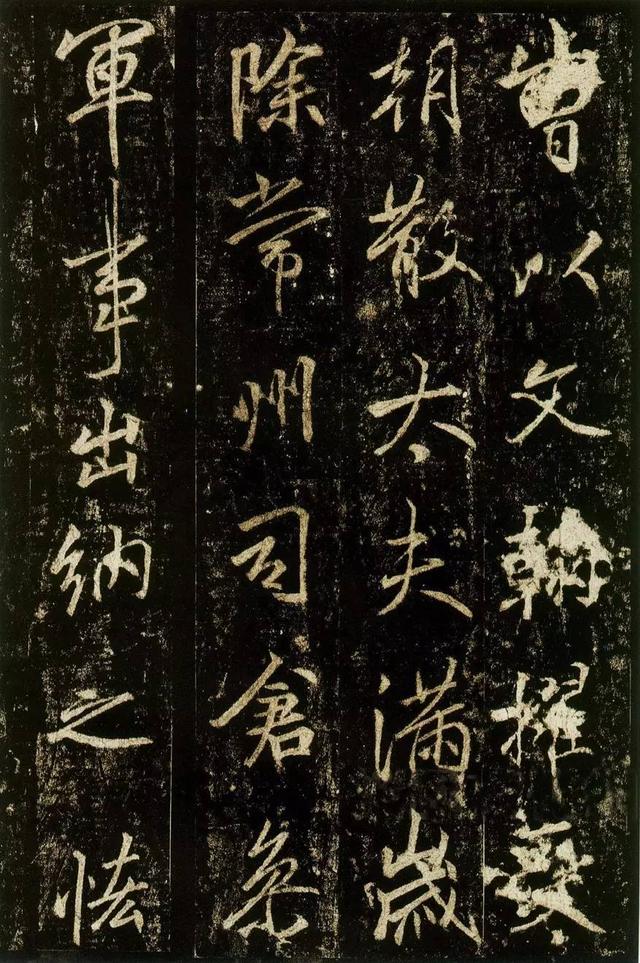 曹以文翰擢
朝散大夫滿歲
除常州司倉參
軍事出納之